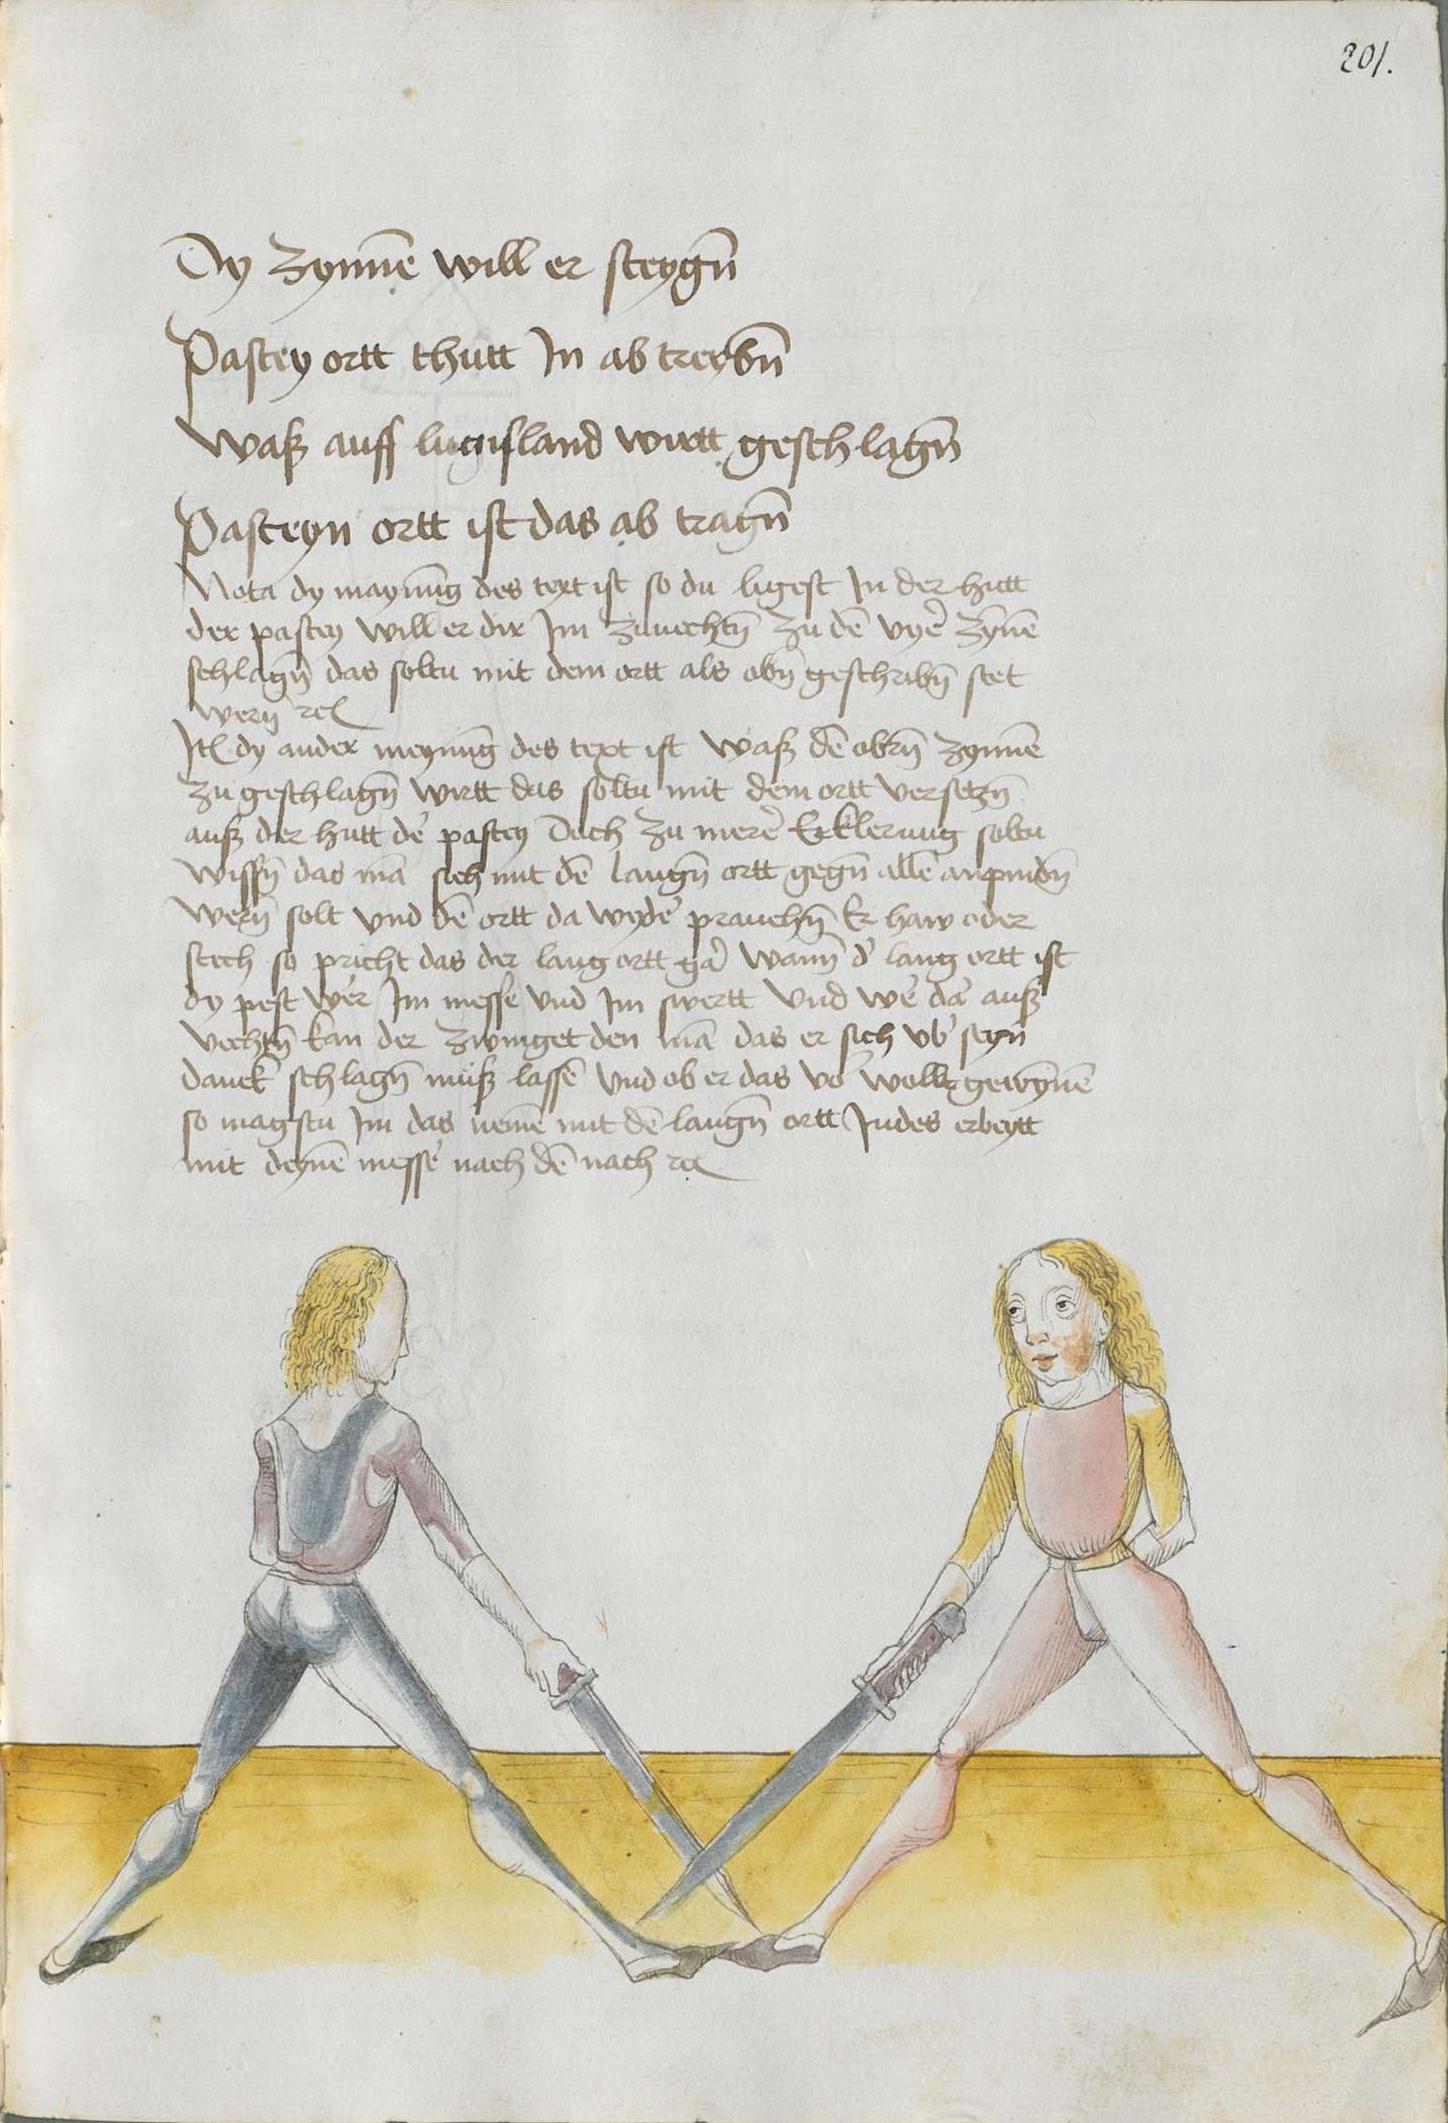 201.
Dy zynnē will er steygn̄
Pastey ortt thutt In ab treybn̄
Waß auff luginsland wirtt geschlagn̄
Pasteyn ortt ist das ab tragn̄
Nota dy maynūg des text ist so du ligest In der hutt
der pastey will er dir Im zuuechtn̄ zu dē vyē zȳnē
schlagn̄ das soltu mit dem ortt als obn̄ geschribn̄ stet
wern̄ rc
Itē dy ander meynūg des text ist waß dē obrn̄ zynnē
zu geschlagn̄ wirtt das soltu mit dem ortt versetzn̄
auß der hutt de' pastey Doch zu merē Erklerung soltu
wissn̄ das mā sich mit dē langn̄ ortt gegn̄ allē anpindn̄
wern̄ solt vnd dē ortt da wyde' prauchn̄ Er haw oder
stech so pricht das der lang ortt gar wann̄ d' lang ortt ist
dy pest wer Im messe vnd Im swertt vnd we' da' auß
vechtn̄ kan der zwinget den mā das er sich vb' seyn̄
danck schlagn̄ muß lassē vnd ob er das vo' wolt gewȳnē
so magstu Im das nemē mit dē langn̄ ortt Indes erbeytt
mit deynē messe' nach dē nach rc